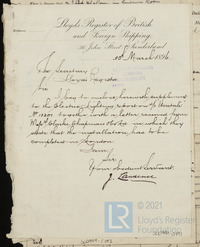 Lloyd's Register of British
and Foreign Shipping.
John Street Sunderland
30th March 1896
The Secretary
Lloyds Register
Sir
I beg to enclose herewith supplement
to the Electric Lighting report on
No 13201 together with a letter received from
Messrs Clarke Chapman & Co in which they
state that the installation has to be
completed in London
I am
Sir
Your obedient Servant
J.
LR
Lloyd's
Register
Foundation
© 2019